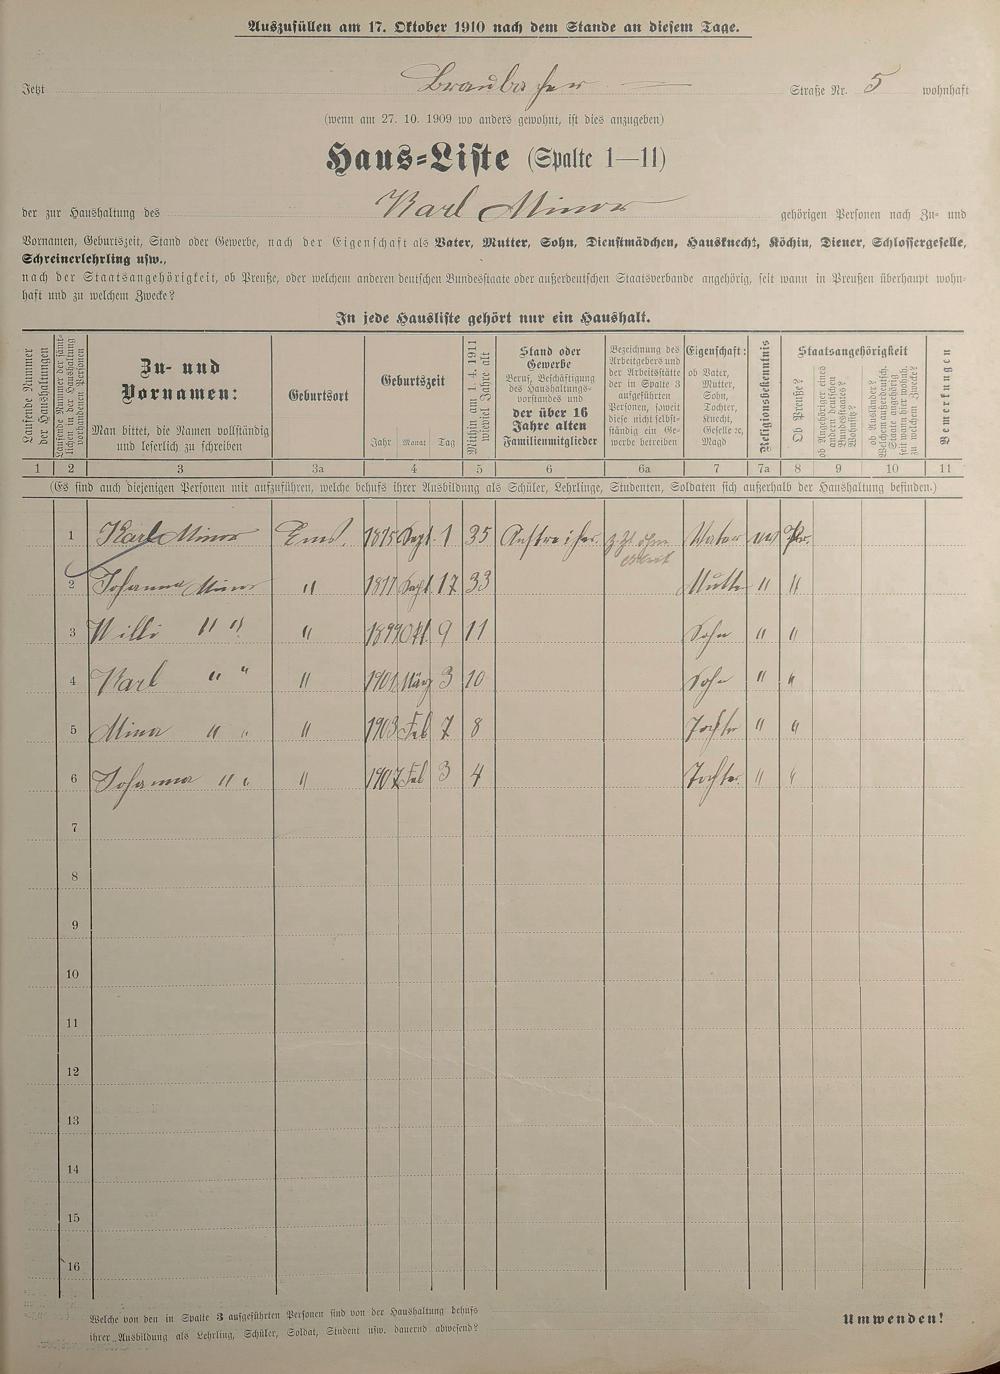 Auszufüllen am 17. Oktober 1910 nach dem Stande an diesem Tage.
Jetzt Braubacher — Straße Nr. 5 wohnhaft
(wenn am 27. 10. 1909 wo anders gewohnt, ist dies anzugeben)
Haus-Liste (Spalte 1—11)
der zur Haushaltung des Karl Minor gehörigen Personen nach Zu- und
Vornamen, Geburtszeit, Stand oder Gewerbe, nach der Eigenschaft als Vater, Mutter, Sohn, Dienstmädchen, Hausknecht, Köchin, Diener, Schlossergeselle,
Schreinerlehrling usw.,
nach der Staatsangehörigkeit, ob Preuße, oder welchem anderen deutschen Bundesstaate oder außerdeutschen Staatsverbande angehörig, seit wann in Preußen überhaupt wohn-
haft und zu welchem Zwecke?
In jede Hausliste gehört nur ein Haushalt.
Laufende Nummer
der Haushaltungen
Laufende Nummer der sämt-
lichen in der Haushaltung
vorhandenen Personen
Zu- und
Vornamen:
Man bittet, die Namen vollständig
und leserlich zu schreiben
Geburtsort
Geburtszeit
Jahr Monat Tag
Mithin am 1. 4. 1911
wieviel Jahre alt
Stand oder
Gewerbe
Beruf, Beschäftigung
des Haushaltungs-
vorstandes und
der über 16
Jahre alten
Familienmitglieder
Bezeichnung des
Arbeitgebers und
der Arbeitsstätte
der in Spalte 3
aufgeführten
Personen, soweit
diese nicht selbst-
ständig ein Ge-
werbe betreiben
Eigenschaft:
ob Vater,
Mutter,
Sohn,
Tochter,
Knecht,
Geselle ꝛc,
Magd
Religionsbekenntnis
Staatsangehörigkeit
Ob Preuße?
ob Angehöriger eines
andern deutschen
Bundesstaates?
Wohnsitz?
ob Ausländer?
Welchem außerdeutsch.
Staate angehörig
seit wann hier wohnh.
zu welchem Zwecke?
Bemerkungen
1 2 3 3a 4 5 6 6a 7 7a 8 9 10 11
(Es sind auch diejenigen Personen mit aufzuführen, welche behufs ihrer Ausbildung als Schüler, Lehrlinge, Studenten, Soldaten sich außerhalb der Haushaltung befinden.)
1 Karl Minor Ems. 1875 Sept. 1 35 Anstreicher z. Zt. ohne Vater Pr.
Arbeit
2 Johanna Minor " 1877 Sept. 17 33 Mutter " "
3 Willi " " " 1899 Okt. 9 11 Sohn " "
4 Karl " " " 1901 März 3 10 Sohn " "
5 Mina " " " 1903 Feb 7 8 Tochter " "
6 Johanna " " " 1907 Feb 3 4 Tochter " "
7
8
9
10
11
12
13
14
15
16
Welche von den in Spalte 3 aufgeführten Personen sind von der Haushaltung behufs
ihrer Ausbildung als Lehrling, Schüler, Soldat, Student usw. dauernd abwesend?
Umwenden!